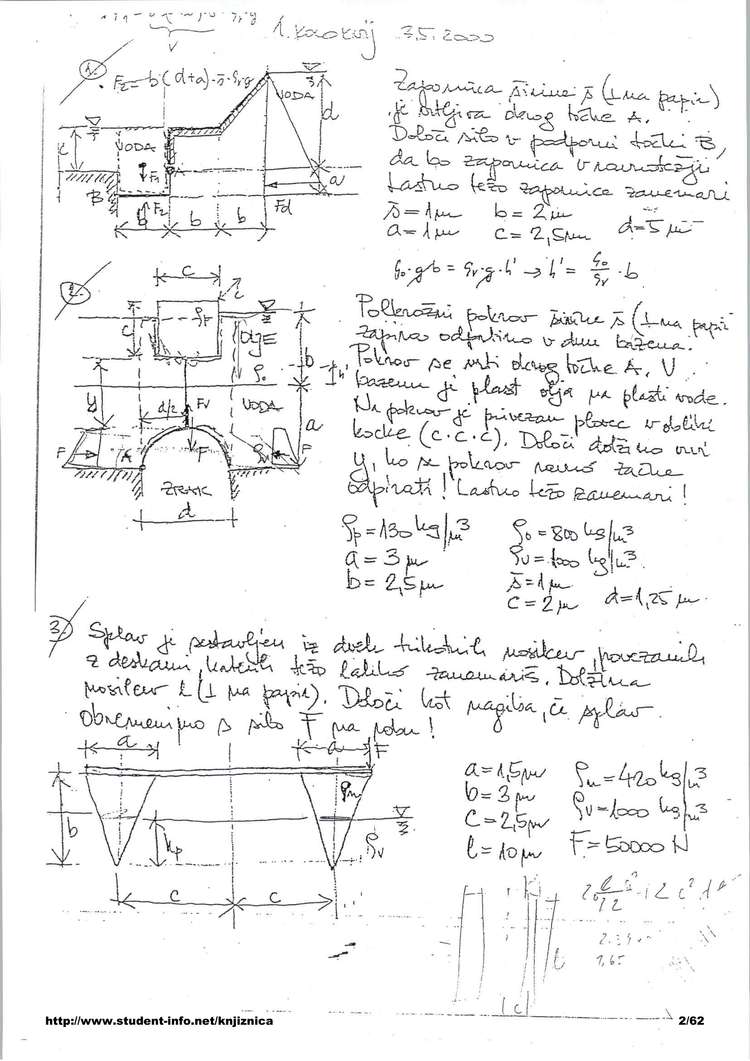 1. kolokvij 3.5.2000
1.
F₂=b·(d+a)·s̄·ρv·g
VODA
VODA
d
c
A
a
B
F₁
F₂
b
b
b
Fd
Zapornica širine s̄ (⊥ na papir)
je vrtljiva okrog točke A.
Določi silo v podporni točki B,
da bo zapornica v ravnotežju
Lastno težo zapornice zanemari
s̄ = 1m b = 2m
a = 1m c = 2,5m d = 5m
ρo·g·b = ρv·g·h' → h' = ρo/ρv · b
2.
c
c
c
ρp
OLJE
ρo
b
h'
y
d/2
Fv
VODA
a
F
A
F
ρv
F
ZRAK
d
Polkrožni pokrov širine s̄ (⊥ na papir)
zapira odprtino v dnu bazena.
Pokrov se vrti okrog točke A. V
bazenu je plast olja na plasti vode.
Na pokrov je privezan plovec v obliki
kocke (c·c·c). Določi dolžino vrvi
y, ko se pokrov ravno začne
odpirati! Lastno težo zanemari!
ρp = 130 kg/m³ ρo = 800 kg/m³
a = 3 m ρv = 1000 kg/m³
b = 2,5m s̄ = 1m
c = 2m d = 1,25 m
3.
Splav je sestavljen iz dveh trikotnih nosilcev, povezanih
z deskami, katerih težo lahko zanemariš. Dolžina
nosilcev l (⊥ na papir). Določi kot nagiba, če splav
obremenimo s silo F na robu!
a
a
F
ρn
b
hp
ρv
c
c
a = 1,5m ρn = 420 kg/m³
b = 3m ρv = 1000 kg/m³
c = 2,5m F = 50000 N
l = 10m
l
c
1,65
http://www.student-info.net/knjiznica 2/62